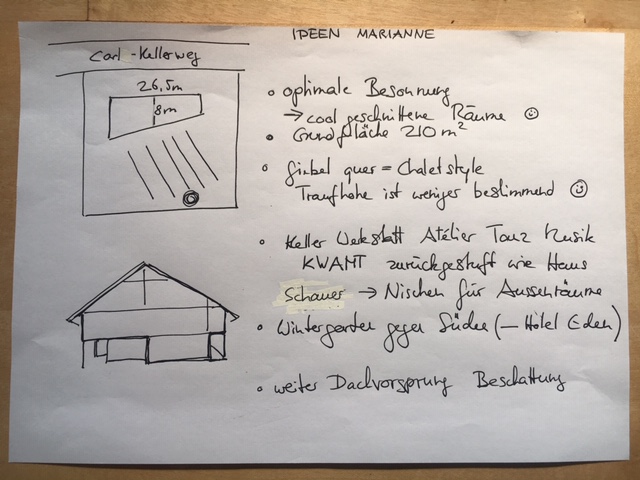 IDEEN MARIANNE
Carl-Kellerweg
26,5m
8m
• optimale Besonnung
→ cool geschnittene Räume
• Grundfläche 210 m²
• Giebel quer = Chaletstyle
Traufhöhe ist weniger bestimmend
• Keller Werkstatt Atelier Tanz Musik
KWAMT zurückgestuft wie Haus
Schauer → Nischen für Aussenräume
• Wintergarten gegen Süden (– Hotel Eden)
• weiter Dachvorsprung Beschattung